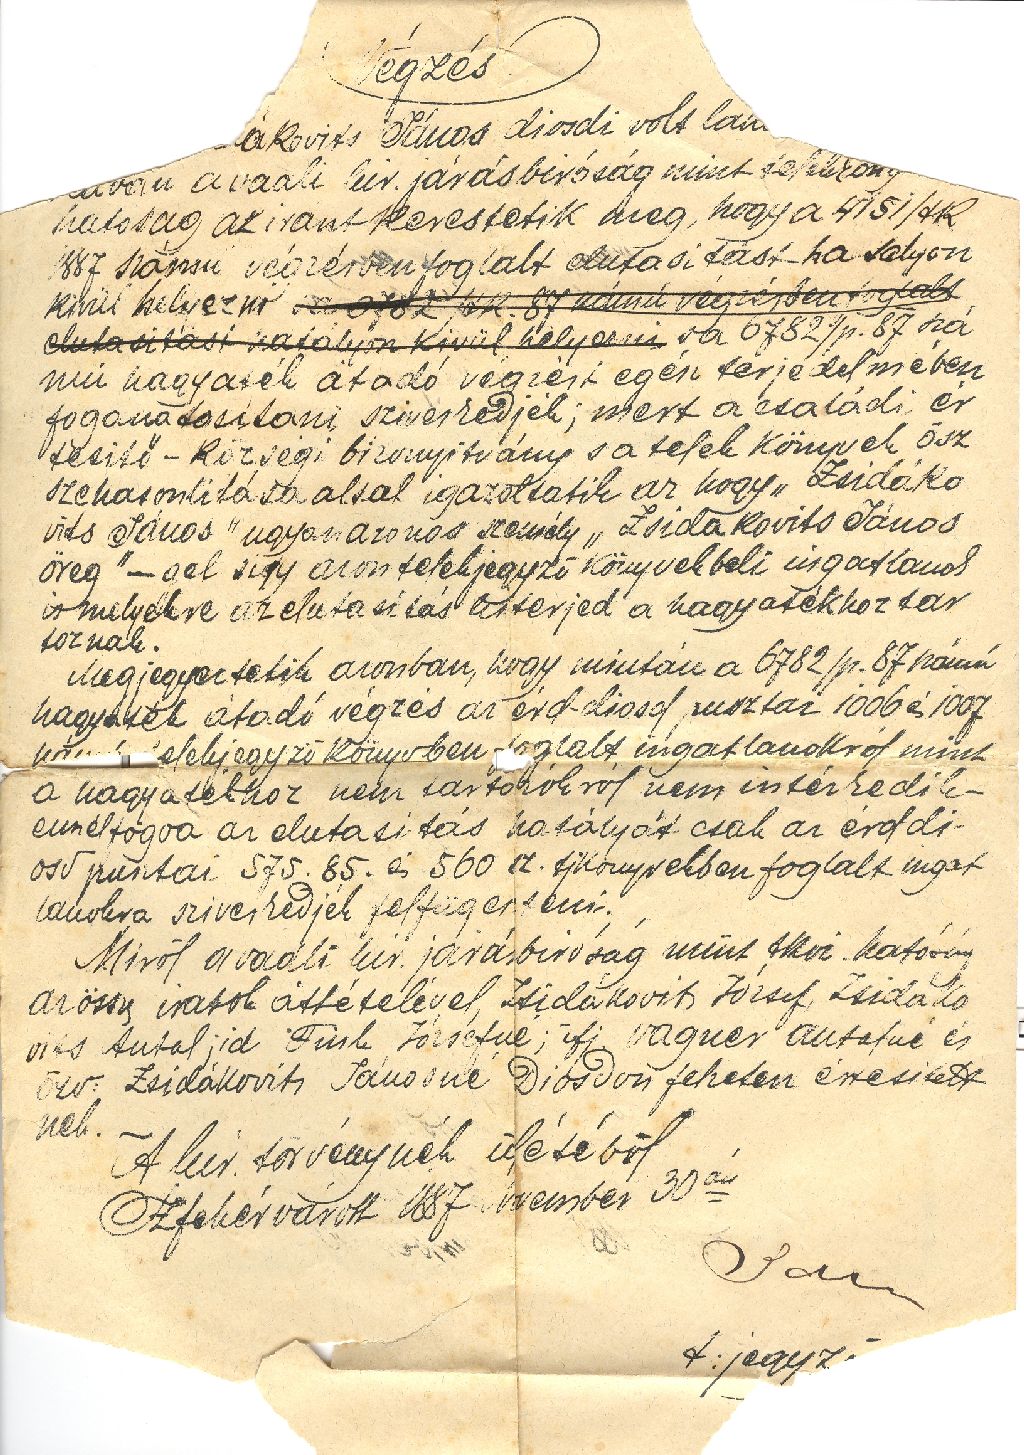 Végzés
ákovits János diosdi volt
a vaali kir. járásbiróság mint
hatoság az irant kerestetik meg, hogy a 4151/tk
1887 számu végzésben foglalt elutasitást hatályon
kivül helyezni sa 6782 tk. 87 számú végzésben foglalt
elutasitást hatályon kivül helyezni sa 6782/p. 87 szá
mú hagyaték átadó végzést egész terjedelmében
foganatositani sziveskedjék; mert a családi ér
tesitő - községi bizonyitvány s a telek könyvek ösz
szehasonlitása altal igazoltatik az hogy „Zsidáko
vits János" ugyanazonos személy „Zsidakovits János
öreg" - gel s igy azon telekjegyző könyvekbeli ingatlanok
is melyekre az elutasitás kiterjed a hagyatékhoz tar
toznak.
Megjegyeztetik azonban, hogy miután a 6782/p. 87 számú
hagyaték átadó végzés az érd diosd pusztai 1006 és 1007
telekjegyző könyvben foglalt ingatlanokról mint
a hagyatékhoz nem tartozókról nem intézkedik -
ennélfogva az elutasitás hatályát csak az érd di-
osd pusztai 575. 85. és 560 sz. tjkönyvekben foglalt ingat
lanokra sziveskedjék felfügeszteni.
Miről a vaáli kir. járásbiróság mint tkvi. hatóság
az össz iratok áttételével, Zsidákovits József, Zsidáko
vits Antal, id Fink Józsefné; ifj. Wagner Antalné és
özv. Zsidákovits Jánosné Diósdon feketen értesitett
nek.
A kir. törvényszék üléséből
Szfehérvárott 1887 november 30 án
t. jegyző